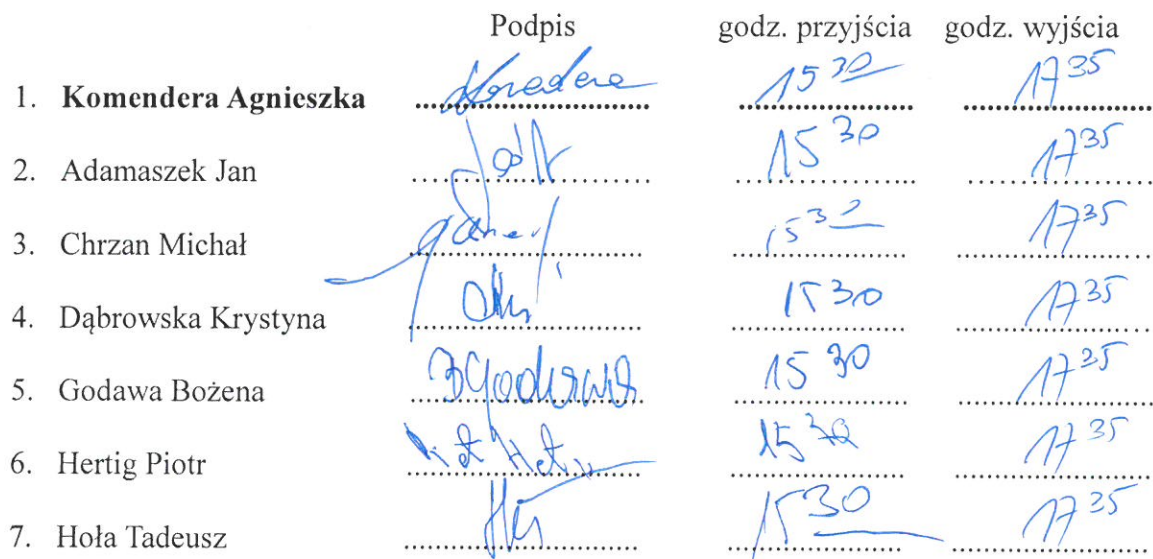 Podpis godz. przyjścia godz. wyjścia
1. Komendera Agnieszka 15 30 17 35
2. Adamaszek Jan 15 30 17 35
3. Chrzan Michał 15 30 17 35
4. Dąbrowska Krystyna 15 30 17 35
5. Godawa Bożena BGodawa 15 30 17 35
6. Hertig Piotr 15 30 17 35
7. Hoła Tadeusz 15 30 17 35